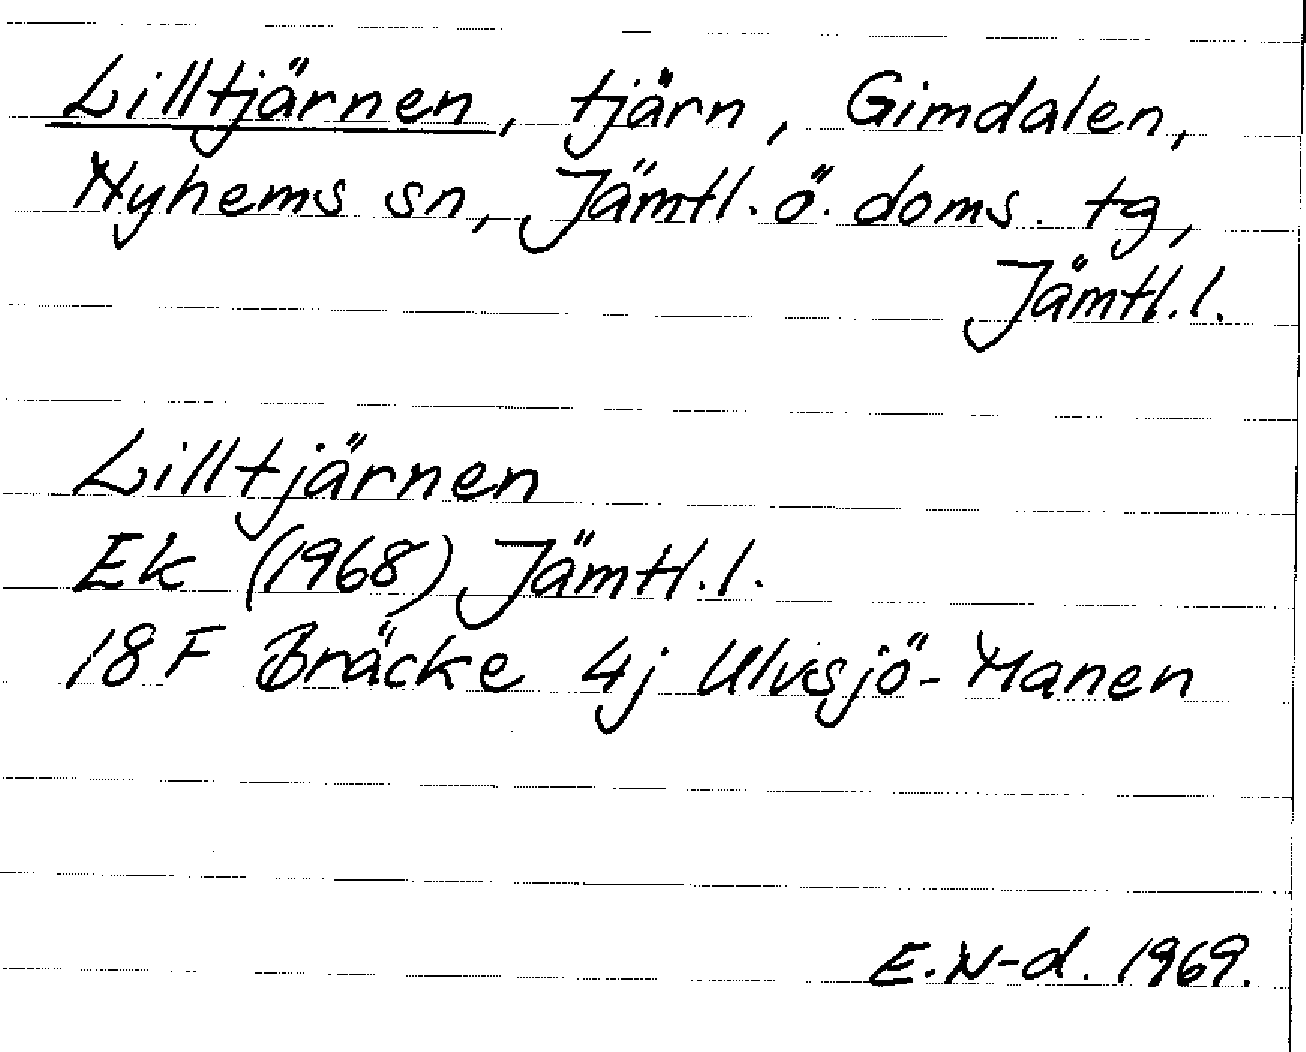 Lilltjärnen, tjärn, Gimdalen,
Nyhems sn, Jämtl. ö. doms. tg,
Jämtl. l.
Lilltjärnen
Ek (1968) Jämtl. l.
18 F Bräcke 4j Ulvsjö-Manen
E. N-d. 1969.